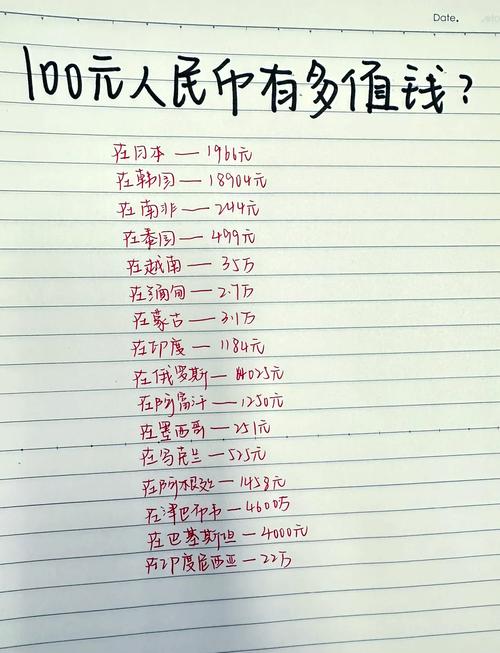 Date.
100元人民币有多值钱？
在日本 — 1966元
在韩国 — 18904元
在南非 — 244元
在泰国 — 499元
在越南 — 35万
在缅甸 — 2.7万
在蒙古 — 3.1万
在印度 — 1184元
在俄罗斯 — 1025元
在阿富汗 — 1250元
在墨西哥 — 251元
在乌克兰 — 525元
在阿根廷 — 1458元
在津巴布韦 — 4600万
在巴基斯坦 — 4000元
在印度尼西亚 — 22万